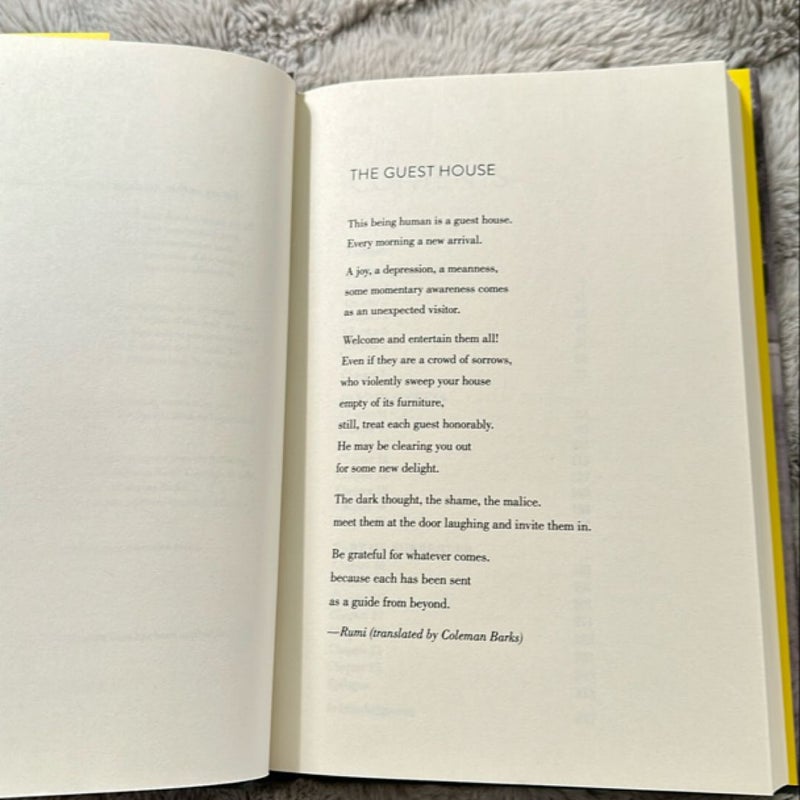 THE GUEST HOUSE
This being human is a guest house.
Every morning a new arrival.
A joy, a depression, a meanness,
some momentary awareness comes
as an unexpected visitor.
Welcome and entertain them all!
Even if they are a crowd of sorrows,
who violently sweep your house
empty of its furniture,
still, treat each guest honorably.
He may be clearing you out
for some new delight.
The dark thought, the shame, the malice.
meet them at the door laughing and invite them in.
Be grateful for whatever comes.
because each has been sent
as a guide from beyond.
—Rumi (translated by Coleman Barks)